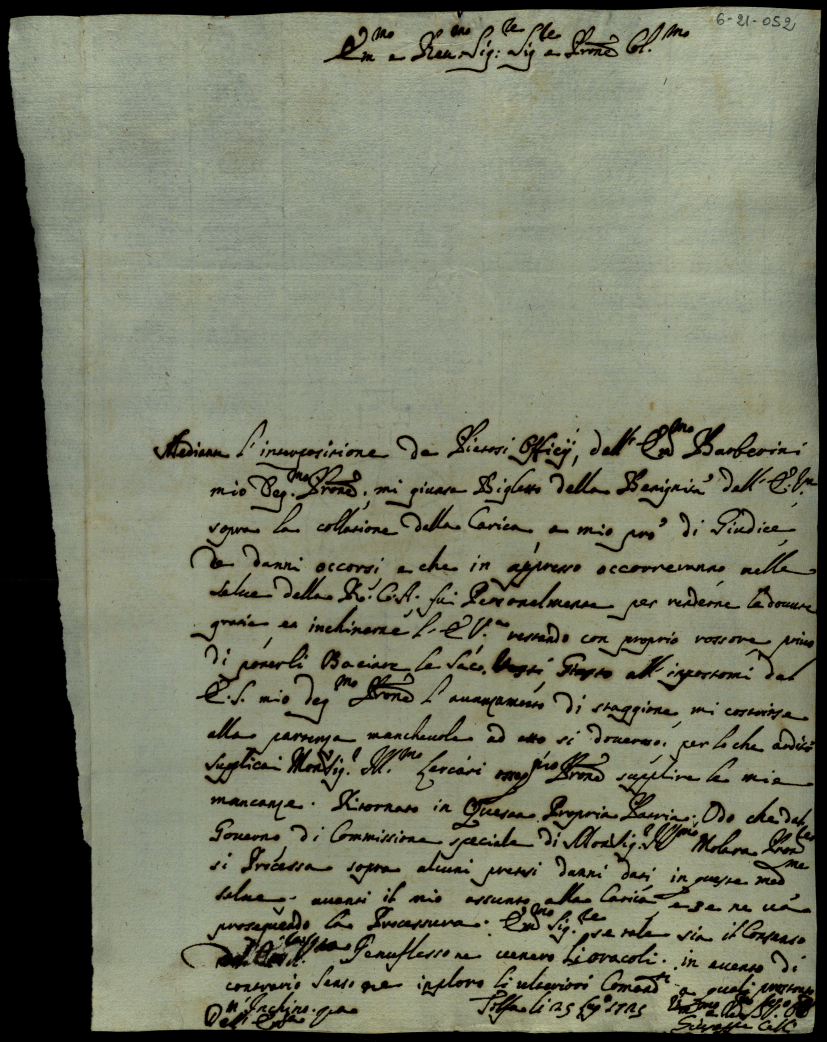 6-21-052
Em.mo e Reu.mo Sig:re Sig.re e Prone Col.mo
Mediante l'interposizione de Pietosi Officij, dell' Em.mo Barberini
mio Deg.mo Prone, mi giunse Biglietto della Benignità dell' E.V.
sopra la collatione della Carica, a mio prò di Giudice
de danni occorsi e che in appresso occorreranno nelle
selue della R. C. A. fui Personalmente per renderne le douute
gratie et inchinarne l'E.V. restando con proprio rossore priuo
di poterli Baciare le Sac. Vesti all' impostomi dal
E.S. mio deg.mo Prone l'auanzamento di staggione mi costrinse
alla partenza mancheuole ad atto si doueroso, per lo che ardij
supplicai Monsig.r Ill.mo Lercari Prone supplire le mie
mancanze. Ritornato in Questa Propria Patria, Odo che dal
Gouerno di Commissione speciale di Monsig.r Ill.mo Molara Prone
si Processa sopra alcuni pretesi danni dati in queste med.me
selue, auanti il mio assunto alla Carica e se ne uà
proseguendo la Processura. Em.mo Sig.re se tale sia il Consenso
Genuflesso ne uenero li oracoli. in euento di
contrario senso ne imploro li ulteriori Comandi a quali prostrato
m'Inchino.
Dell' E.V. Tolfa li 25 1725
Giuseppe